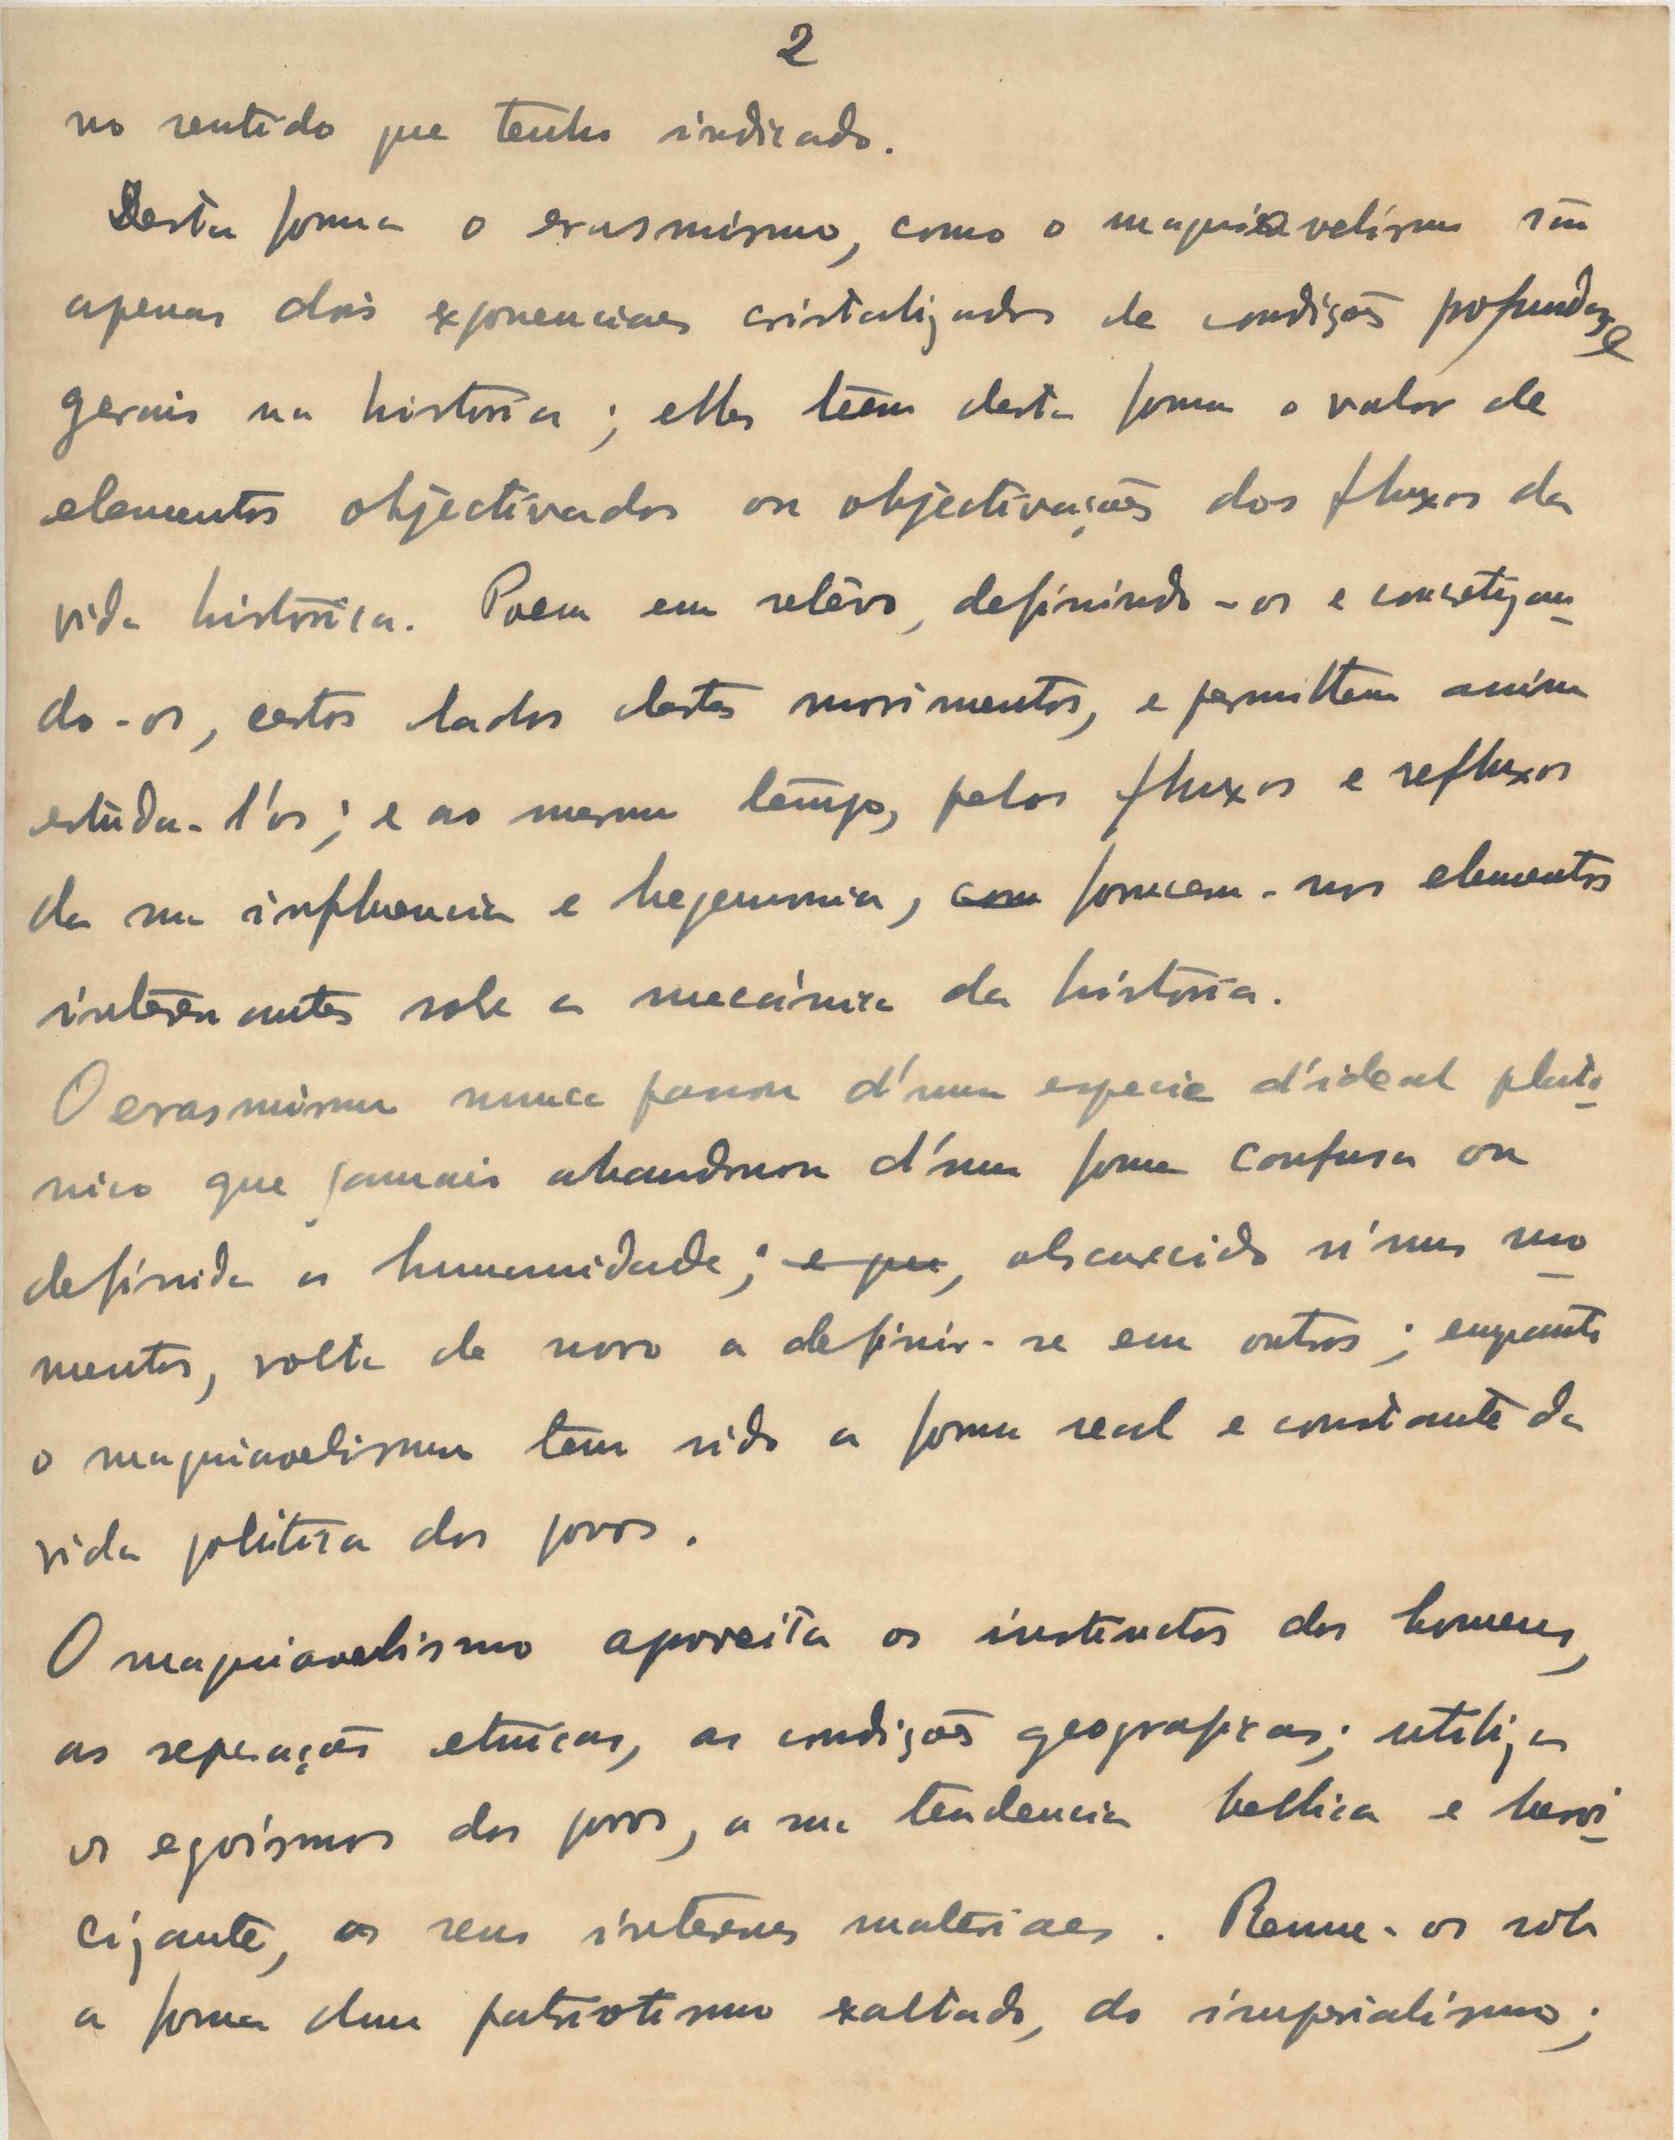 2
no sentido que tenho indicado.
Desta forma o erasmismo, como o maquiavelismo são
apenas dois exponenciaes cristalizados de condições profundas e
gerais na história; elles teem desta forma o valor de
elementos objectivados ou objectivações dos fluxos da
vida histórica. Poem em relêvo, definindo-os e concretizan-
do-os, certos lados destes movimentos, e permittem assim
estuda-l'os; e ao mesmo tempo, pelos fluxos e refluxos
da sua influencia e hegemonia, com fornecem-nos elementos
interessantes sobre a mecánica da história.
O erasmismo nunca passou d'uma especie d'ideal plato-
nico que jamais abandonou d'uma forma confusa ou
definida a humanidade; e que, obscurecido n'uns mo-
mentos, volta de novo a definir-se em outros; enquanto
o maquiavelismo tem sido a forma real e constante da
vida politica dos povos.
O maquiavelismo aproveita os instinctos dos homens,
as separações etnicas, as condições geograficas; utiliza
os egoismos dos povos, a sua tendencia bellica e heroi-
cizante, os seus interesses materiaes. Reune-os sob
a forma dum patriotismo exaltado, do imperialismo;